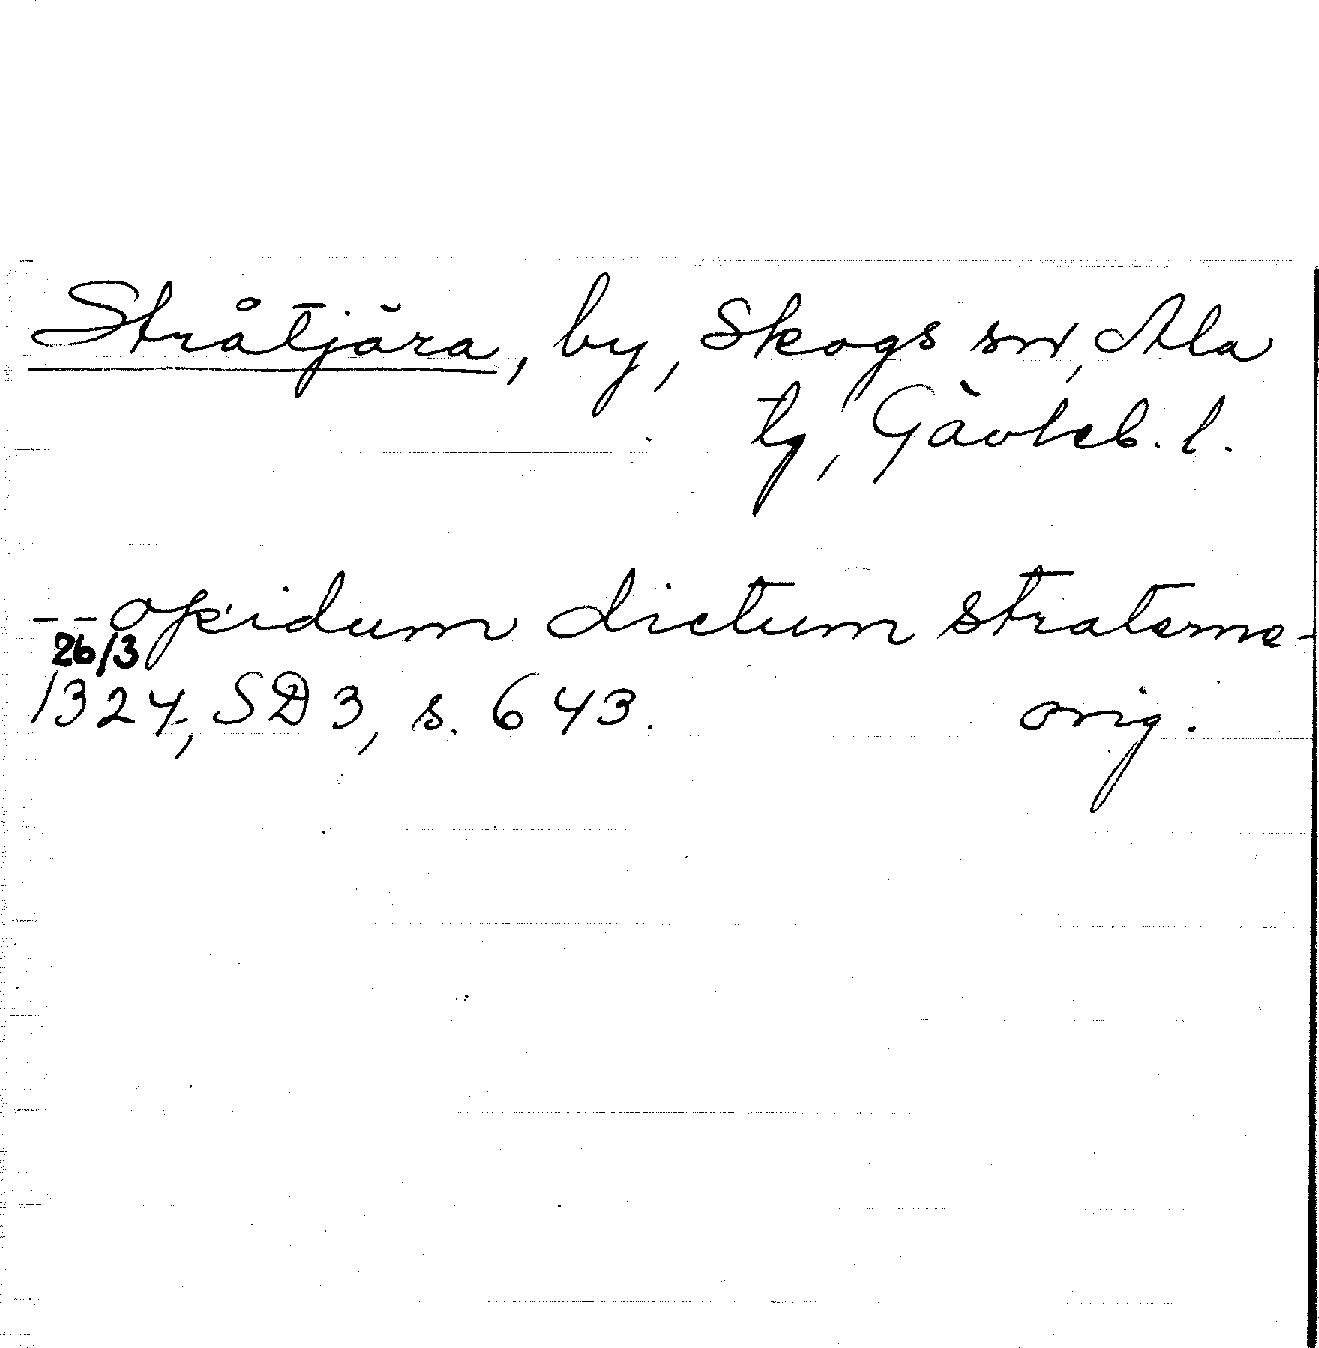 Stråtjära, by, Skogs sn, Ala
tg, Gävleb. l.
-- opidum dictum straterne -
26/3
1324, SD 3, s. 643. orig.